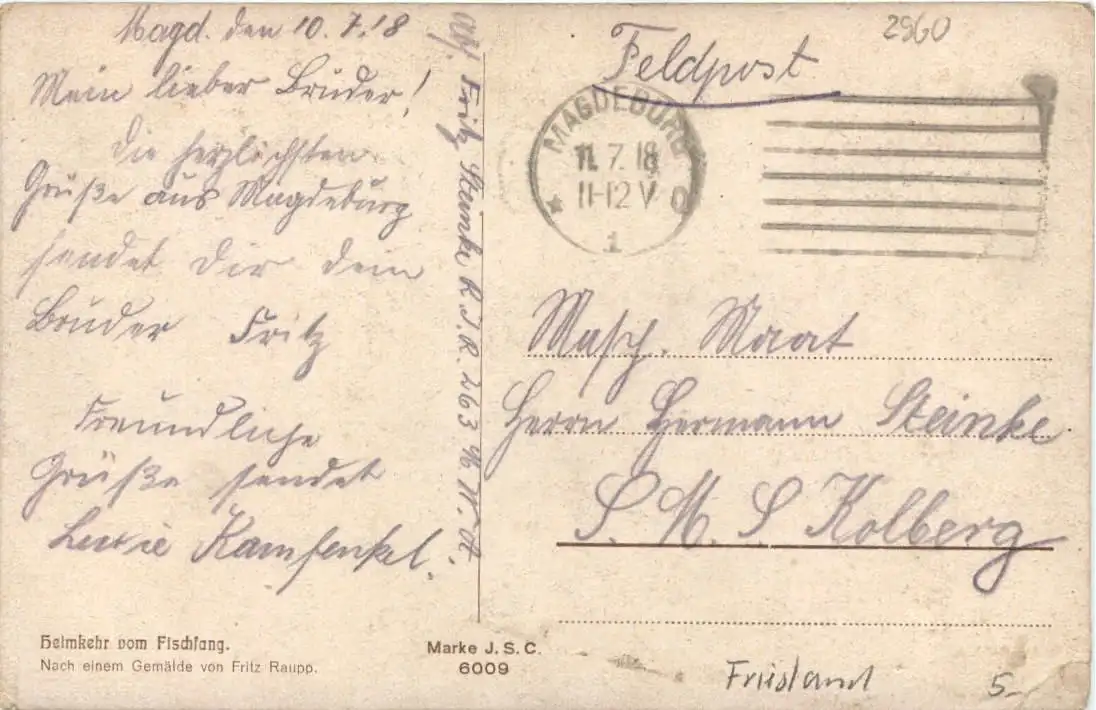 Magd. den 10.7.18
Mein lieber Bruder!
Die herzlichsten
Grüße aus Magdeburg
sendet Dir dein
Bruder Fritz
Freundliche
Grüße sendet
Luzie
Abs. Fritz Steinke R.I.R. 263
Heimkehr vom Fischfang.
Nach einem Gemälde von Fritz Raupp.
Marke J. S. C.
6009
2960
Feldpost
MAGDEBURG
11.7.18
11-12 V
* 1 Q
Masch. Maat
Herrn Hermann Steinke
S. M. S Kolberg
Friesland
5.-